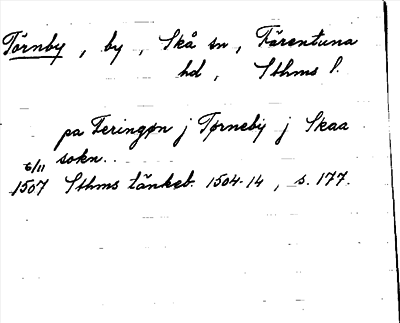 Törnby, by, Skå sn, Färentuna
hd, Sthms l.
pa Feringøn j Tørneby j Skaa
sokn..
6/11
1507 Sthms tänkeb. 1504-14, s. 177.